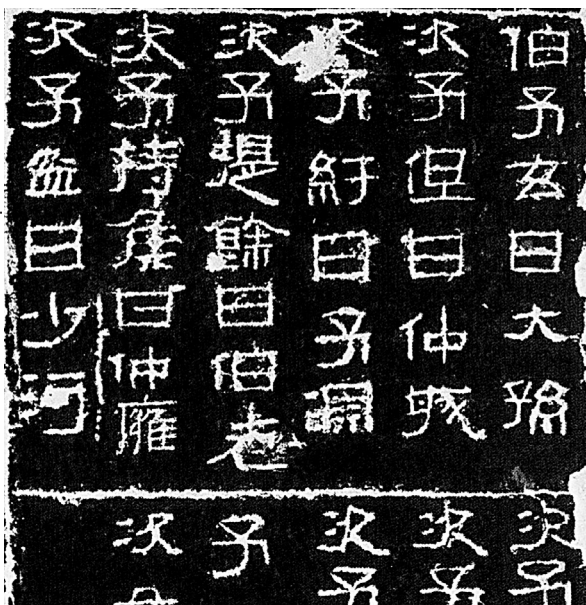 伯子玄曰大孫
次子但曰仲城
次子紆曰子淵
次子提餘曰伯老
次子持侯曰仲癰
次子盆曰少河
次子
次子
次子
子
次